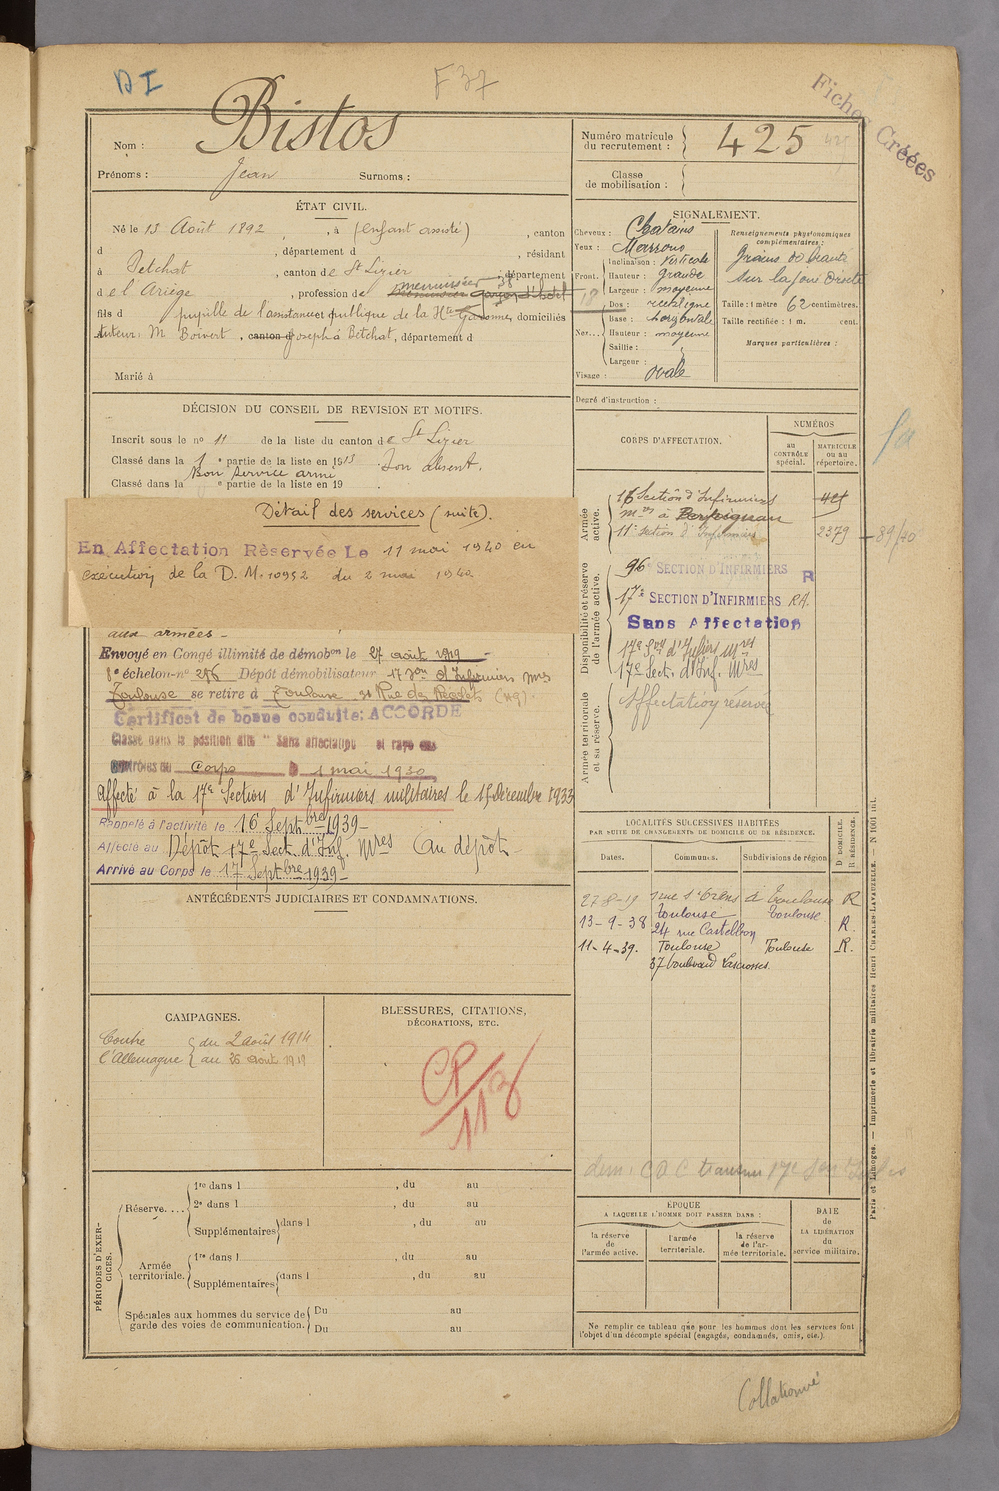 DI
F 37
Fiches Créées
Nom : Bistos
Prénoms : Jean Surnoms :
Numéro matricule du recrutement : 425
Classe de mobilisation :
ÉTAT CIVIL.
Né le 13 Août 1892, à (enfant assisté), canton
d , département d , résidant
à Betchat, canton de St Lizier, département
de l'Ariège, profession de menuisier garçon d'hôtel
fils d pupille de l'assistance publique de la Hte Garonne, domiciliés
tuteur: M. Boivert, canton d Joseph à Betchat, département d
Marié à
SIGNALEMENT.
Cheveux : Chatains
Yeux : Marrons
Front. Inclinaison : Verticale
Hauteur : grande
Largeur : moyenne
Nez... Dos : rectiligne
Base : horizontale
Hauteur : moyenne
Saillie :
Largeur :
Visage : ovale
Renseignements physionomiques complémentaires :
grains de beauté
sur la joue droite
Taille : 1 mètre 62 centimètres.
Taille rectifiée : 1 m. cent.
Marques particulières :
Degré d'instruction :
DÉCISION DU CONSEIL DE REVISION ET MOTIFS.
Inscrit sous le n° 11 de la liste du canton de St Lizier
Classé dans la 1 e partie de la liste en 1913 Bon absent.
Bon service armé
Classé dans la e partie de la liste en 19
Détail des services (suite).
En Affectation Réservée Le 11 mai 1940 en
exécution de la D. M. 10952 du 2 mai 1940
aux armées
Envoyé en Congé illimité de démobon le 27 août 1919
8e échelon n° 276 Dépôt démobilisateur 17 Son d'Infirmiers Mres
Toulouse se retire à Toulouse 21 Rue des Récollets (Hg).
Certificat de bonne conduite: ACCORDÉ
Classé dans la position dite "Sans affectation" et rayé des
contrôles du Corps 1 mai 1930
Affecté à la 17e Section d'Infirmiers militaires le 15 Décembre 1933
Rappelé à l'activité le 16 Septbre 1939
Affecté au Dépôt 17e Sect. d'Inf. Mres (au dépôt
Arrivé au Corps le 17 Septbre 1939
CORPS D'AFFECTATION.
NUMÉROS
au CONTRÔLE spécial.
MATRICULE ou au répertoire.
Armée active.
16 Section d'Infirmiers
Mres à Perpignan
11e Section d'Infirmiers 2379
89/40
Disponibilité et réserve de l'armée active.
96 SECTION D'INFIRMIERS R
17e SECTION D'INFIRMIERS RA.
Sans Affectation
17e Son d'Infiers Mres
17e Sect. d'Inf. Mres
Armée territoriale et sa réserve.
Affectation réservée
LOCALITÉS SUCCESSIVES HABITÉES
PAR SUITE DE CHANGEMENTS DE DOMICILE OU DE RÉSIDENCE.
Dates. Communes. Subdivisions de région. D DOMICILE. R RÉSIDENCE.
27-8-19 Toulouse R
13-9-38 Toulouse Toulouse R.
24 rue Castellbon
11-4-39. Toulouse Toulouse R.
37 boulevard Lascrosses.
ANTÉCÉDENTS JUDICIAIRES ET CONDAMNATIONS.
CAMPAGNES.
Contre l'Allemagne
du 2 août 1914
au 26 août 1919
BLESSURES, CITATIONS,
DÉCORATIONS, ETC.
PÉRIODES D'EXERCICES.
Réserve....
1re dans l , du au
2e dans l , du au
Supplémentaires dans l , du au
Armée territoriale.
1re dans l , du au
Supplémentaires dans l , du au
Spéciales aux hommes du service de garde des voies de communication.
Du au
Du au
ÉPOQUE
A LAQUELLE L'HOMME DOIT PASSER DANS :
la réserve de l'armée active.
l'armée territoriale.
la réserve de l'armée territoriale.
DATE DE LA LIBÉRATION du service militaire.
Ne remplir ce tableau que pour les hommes dont les services font
l'objet d'un décompte spécial (engagés, condamnés, omis, etc.).
Paris et Limoges. — Imprimerie et librairie militaires Henri CHARLES-LAVAUZELLE. — N 1001 int.
Collationné